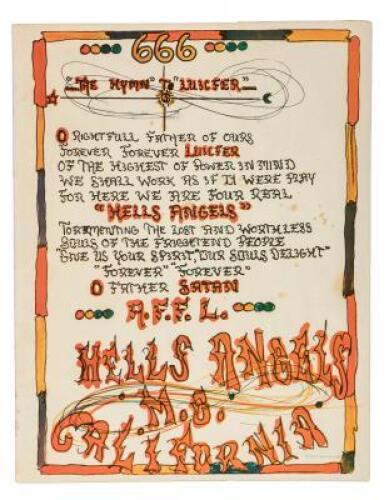 666
"THE HYMN" TO "LUICFER"
O RIGHTFULL FATHER OF OURS
FOREVER FOREVER LUICFER
OF THE HIGHEST OF POWER IN MIND
WE SHALL WORK AS IF IT WERE PLAY
FOR HERE WE ARE FOUR REAL
"HELLS ANGELS"
TOREMENTING THE LOST AND WORTHLESS
SOULS OF THE FRIGHTEND PEOPLE
"GIVE US YOUR SPIRIT," OUR SOULS DELIGHT"
"FOREVER" "FOREVER"
O FATHER SATAN
A.F.F.L.
HELLS ANGELS
M.C.
CALIFORNIA